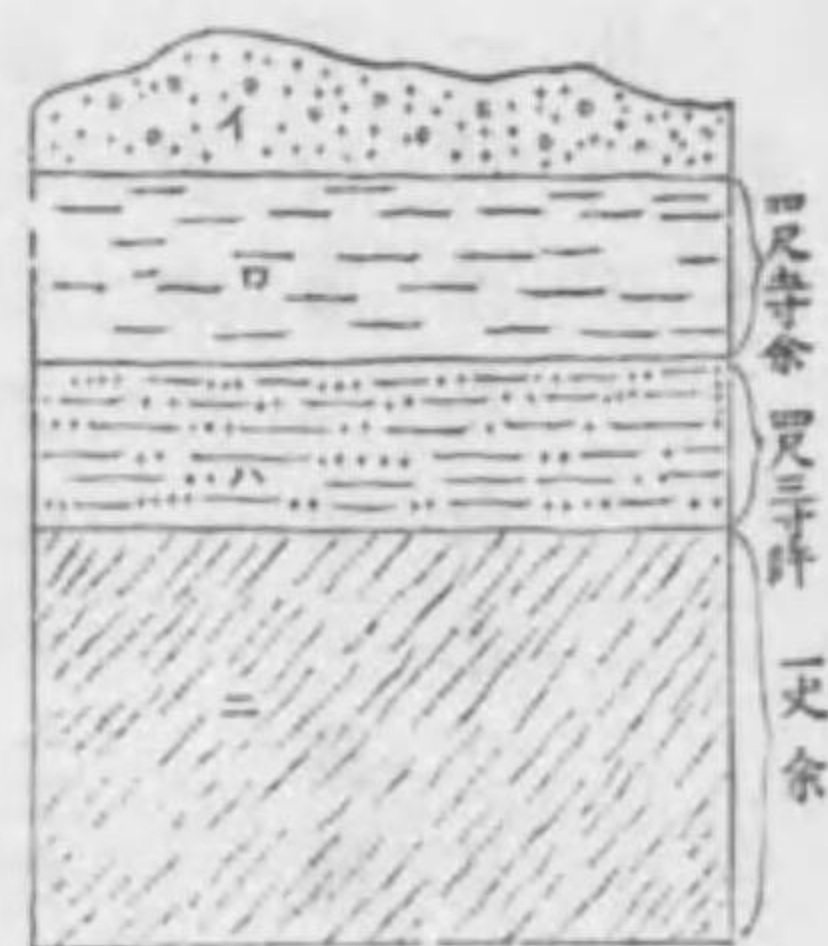 イ
ロ
ハ
ニ
四尺五寸余
四尺三寸許
一丈余